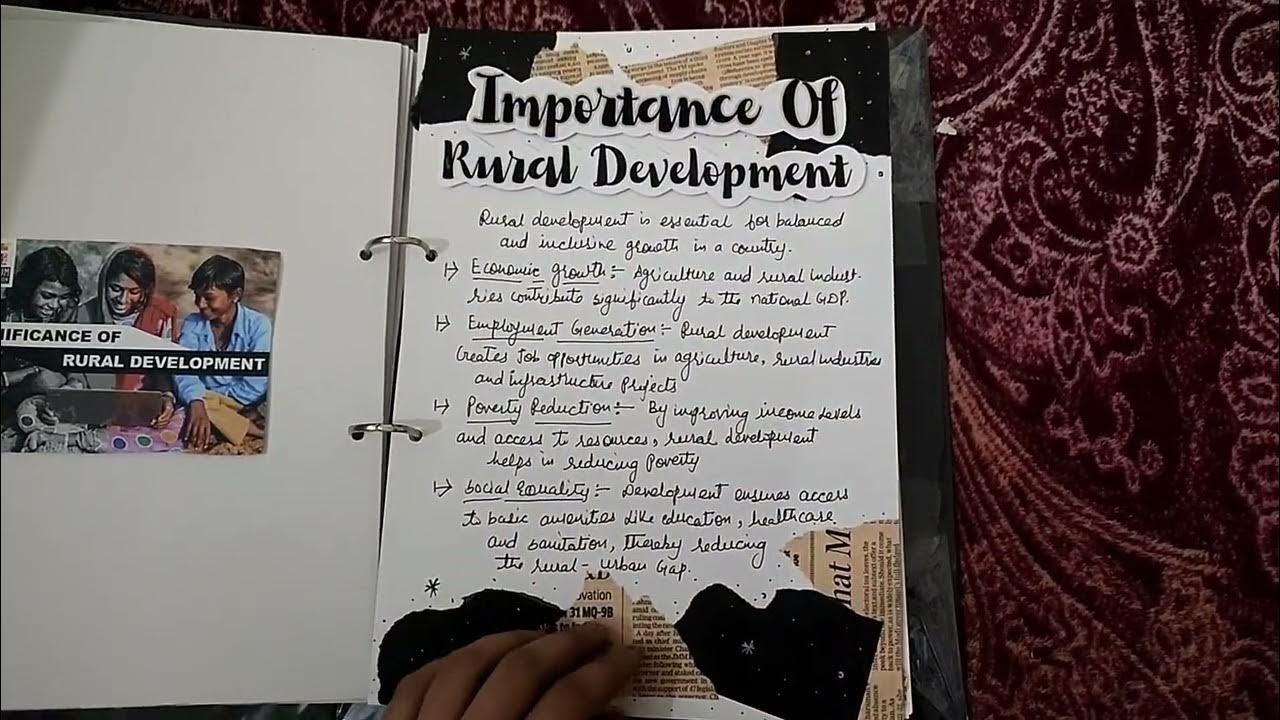 NIFICANCE OF
RURAL DEVELOPMENT
Importance Of
Rural Development
Rural development is essential for balanced
and inclusive growth in a country.
Economic growth:- Agriculture and rural indust-
ries contribute significantly to the national GDP.
Employment Generation:- Rural development
creates Job opportunities in agriculture, rural industries
and infrastructure Projects
Poverty Reduction:- By improving income levels
and access to resources, rural development
helps in reducing Poverty
Social Equality:- Development ensures access
to basic amenities like education, healthcare
and sanitation, thereby reducing
the rural-urban Gap.
ovation
31 MQ-9B
hat M